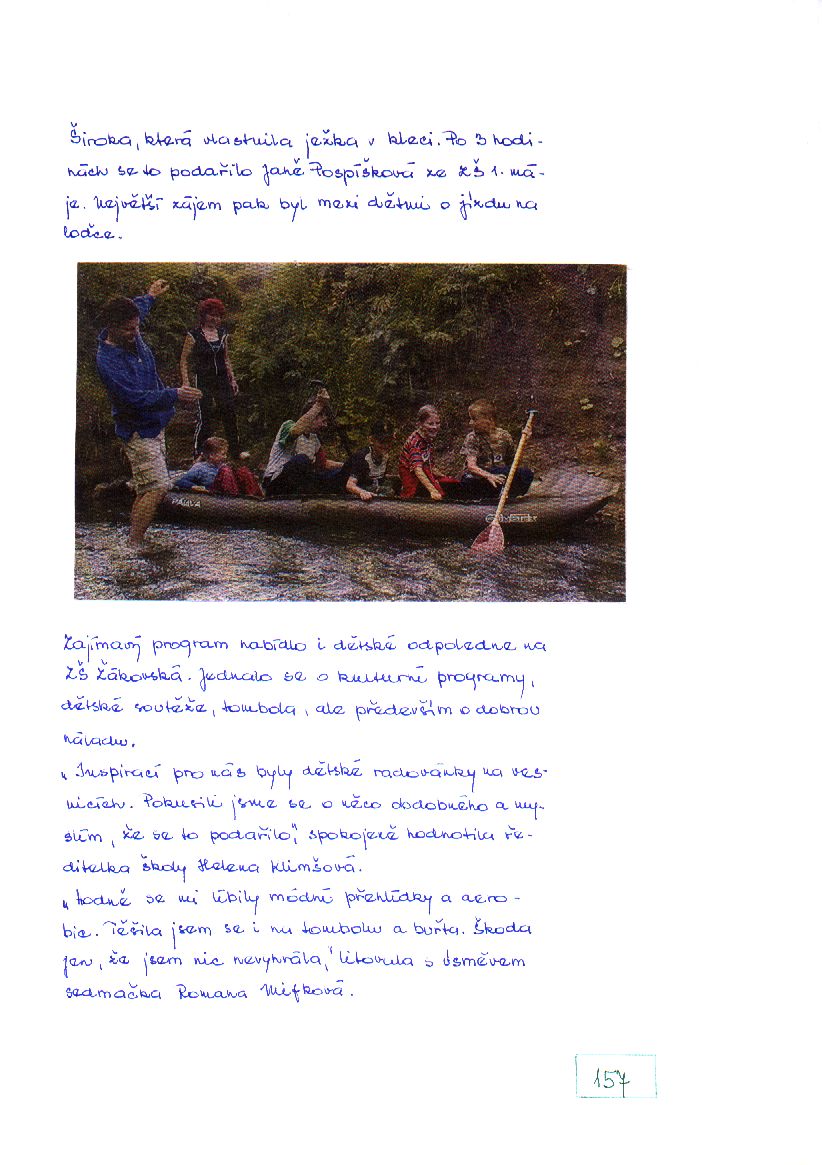 Široka, která vlastnila ježka v kleci. Po 3 hodi-
nách se to podařilo Janě Pospíškové ze ZŠ 1. má-
je. Největší zájem pak byl mezi dětmi o jízdu na
loďce.
PÁLAVA
GUMOTEX
Zajímavý program nabídlo i dětské odpoledne na
ZŠ Žákovská. Jednalo se o kulturní programy,
dětské soutěže, tombola, ale především o dobrou
náladu.
„Inspirací pro nás byly dětské radovánky na ves-
nicích. Pokusili jsme se o něco dodobného a mys-
slím, že se to podařilo", spokojeně hodnotila ře-
ditelka školy Helena Klimšová.
„Hodně se mi líbily módní přehlídky a aero-
bic. Těšila jsem se i na tombolu a buřta. Škoda
jen, že jsem nic nevyhrála," litovala s úsměvem
sedmačka Romana Mifková.
157